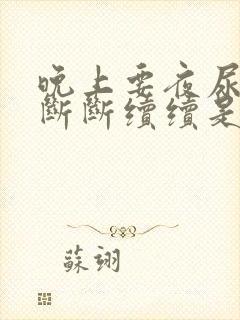 晚上要夜尿
斷斷續續是
蘇翊